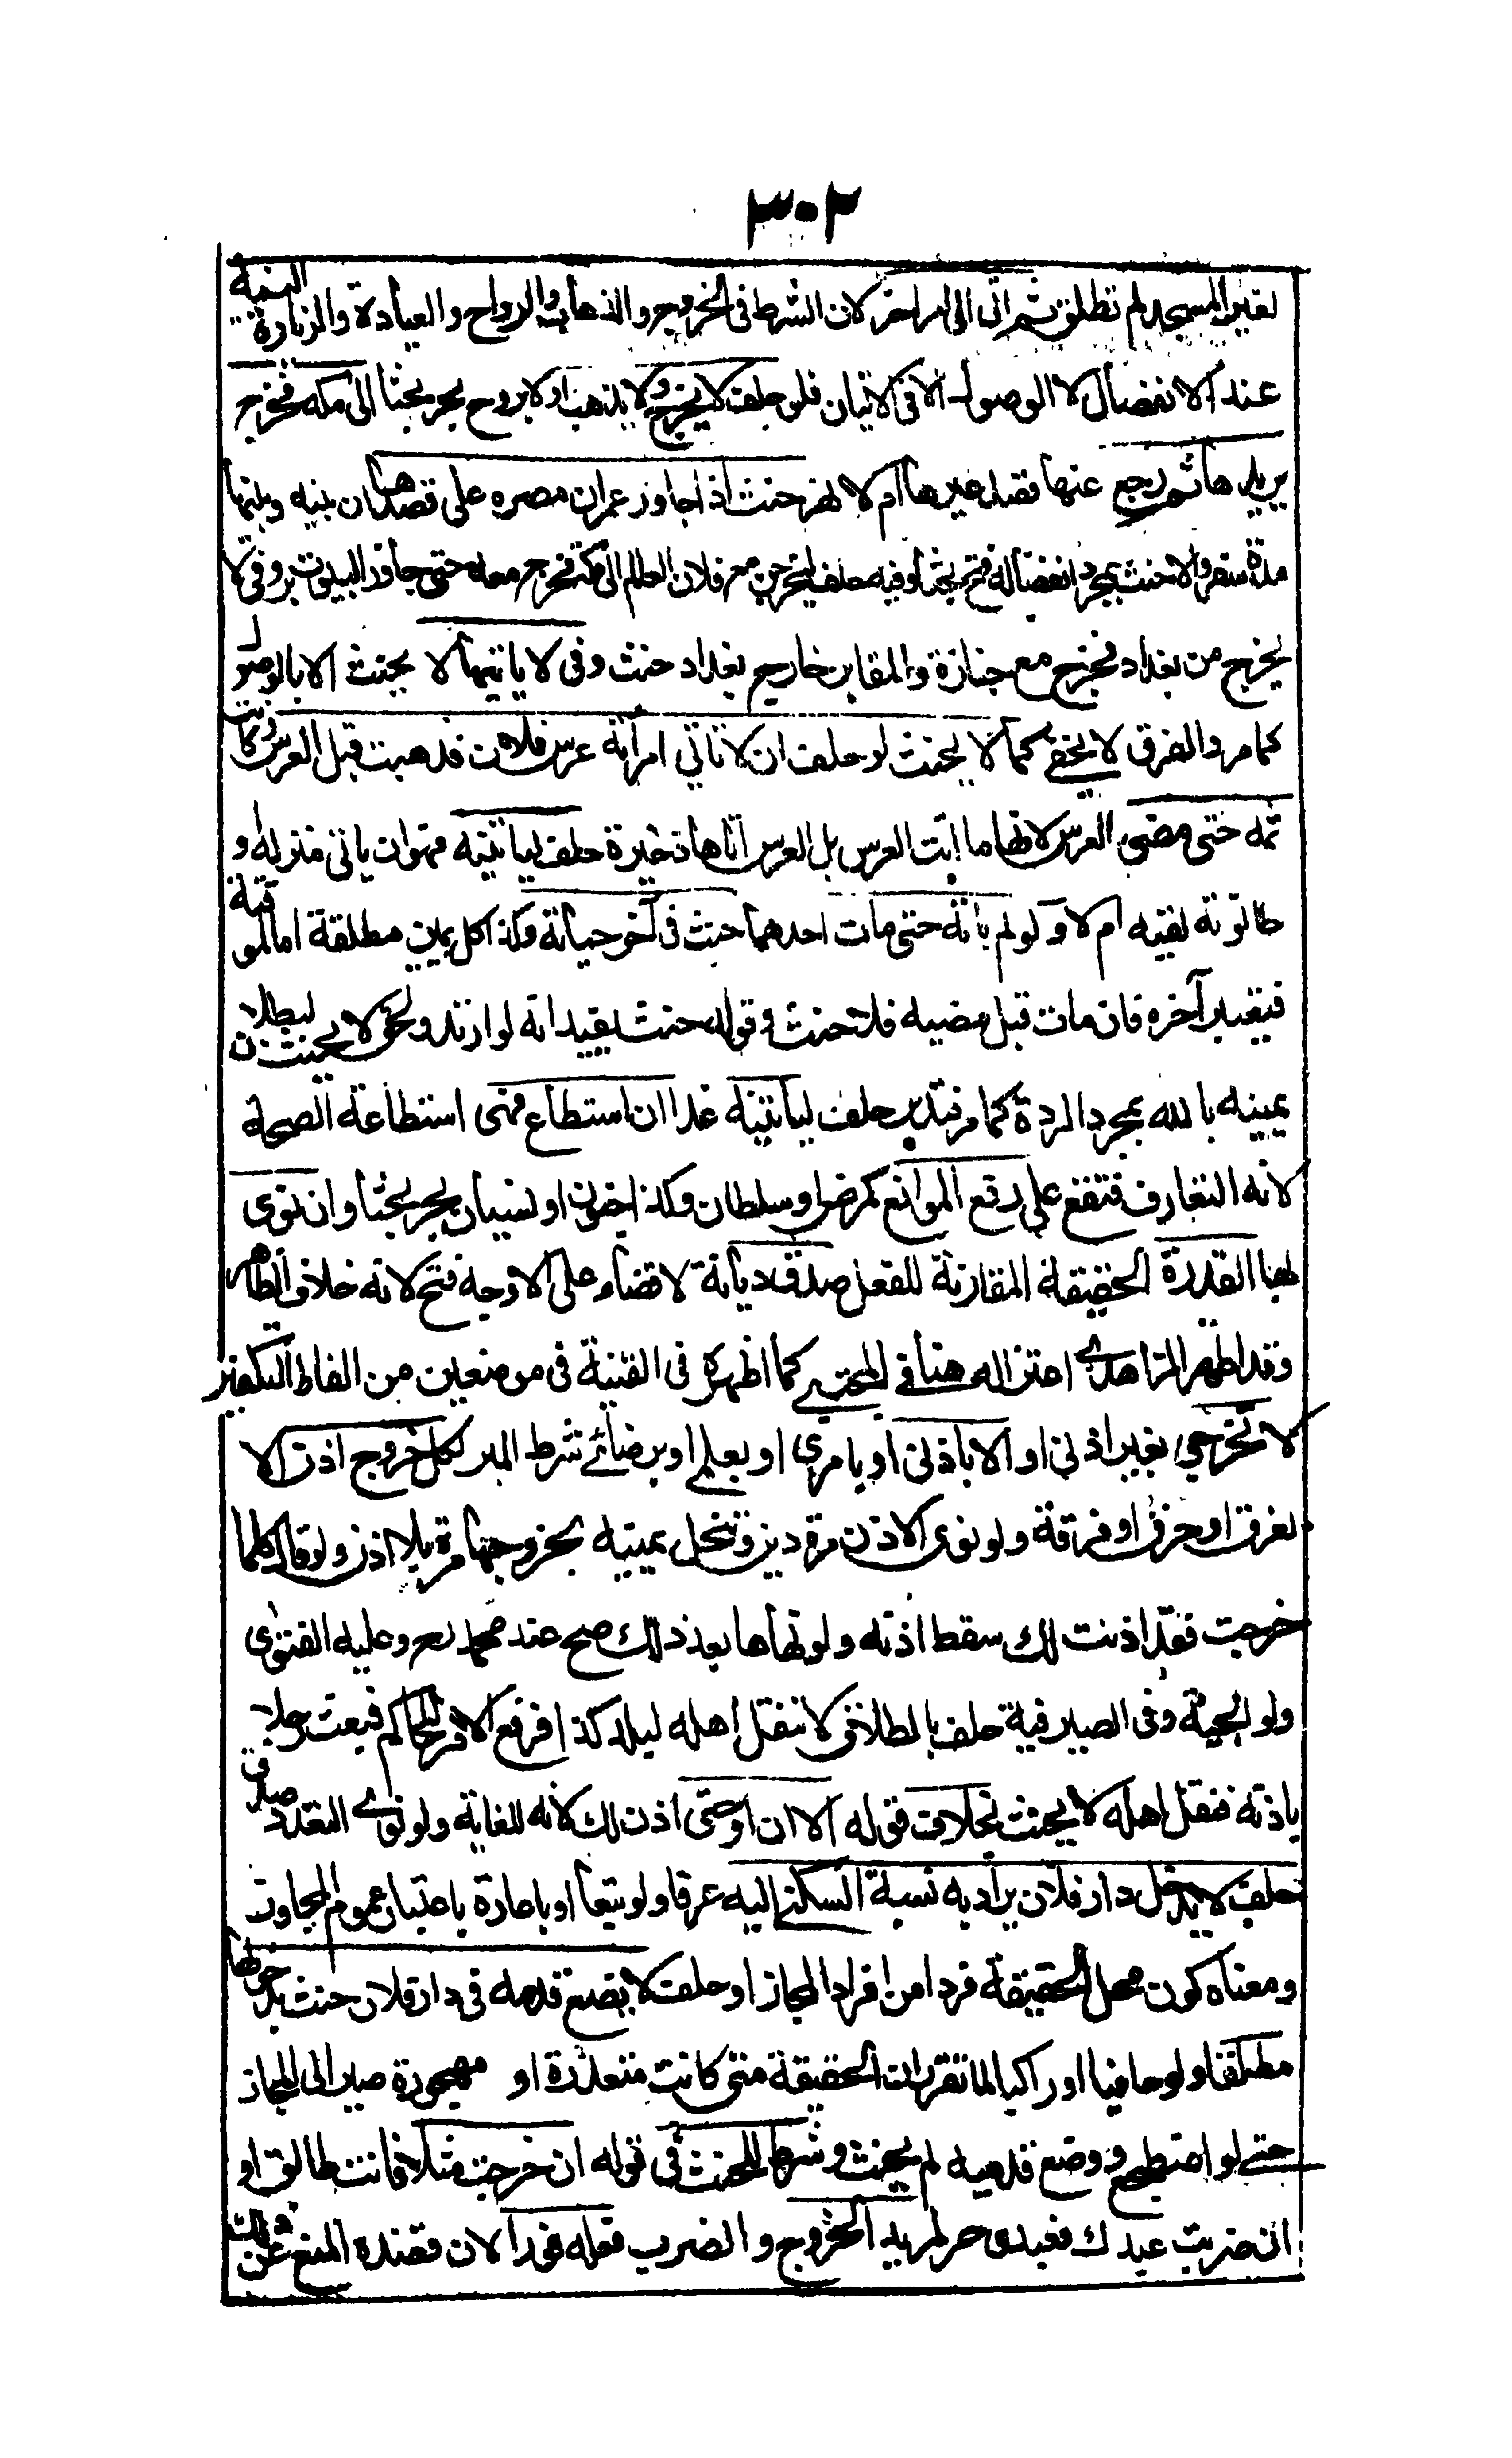 ٣٠٢
لغير المسجد لم تطلق ثم اتى الى امر اخر لان الشرط فى الخروج والذهاب والرواح والعيادة والزيارة النية
عند الانفصال لا الوصول الا فى الاتيان فلو حلف لا يخرج ولا يذهب او لا يروح بحر بحثا الى مكة فخرج
يريدها ثم رجع عنها قصد غيرها ام لا نهر حنث اذا جاوز عمران مصره على قصدها ان بينه وبينها
مدة سفر والا حنث بمجرد انفصاله فتح بحثا وفيه حلف ليخرجن مع فلان العالم الى مكة فخرج معه حتى جاوز البيوت بر وفى لا
يخرج من بغداد فخرج مع جنازة والمقابر خارج بغداد حنث وفى لا ياتيها لا يحنث الا بالوصول
كما مر والفرق لا يخفى كما لا يحنث لو حلف ان لا تاتي امراته عرس فلان فذهبت قبل العرس وكانت
ثمه حتى مضى العرس لانها ما اتت العرس بل العرس اتاها ذخيرة حلف لياتينه فهو ان ياتى منزله او
حانوته لقيه ام لا ولو لم ياته حتى مات احدهما حنث فى آخر حياته وكذا كل يمين مطلقة اما الموقتة
فيعتبر آخره فان مات قبل مضيه فلا حنث وقوله حنث يفيد انه لو ارتد ولحق لا يحنث لبطلان
يمينه بالله بمجرد الردة كما مر فتدبر حلف لياتينه غدا ان استطاع فهى استطاعة الصحة
لانه المتعارف فتقع على رفع الموانع كمرض او سلطان وكذا جنون او نسيان بحر بحثا وان نوى
بها القدرة الحقيقة المقارنة للفعل صدق ديانة لا قضاء على الاوجه فتح لانه خلاف الظاهر
وقد اظهر الزاهدى اعتزاله هنا فى المجتبى كما اظهره فى القنية فى موضعين من الفاظ التكفير
لا تخرجي بغير اذنى او الا باذنى او بامرى او بعلمى او برضائى شرط البر لكل خروج اذن الا
لغرق او حرق او فرقة ولو نوى الاذن مرة دين وتنحل يمينه بخروجها مرة بلا اذن ولو قال كلما
خرجت فقد اذنت لك سقط اذنه ولو نهاها بعد ذلك صح عند محمد رح وعليه الفتوى
ولوالجية وفى الصيرفية حلف بالطلاق لا ينقل اهله لبلد كذا فرفع الامر للحاكم فبعث رجلا
باذنه فنقل اهله لا يحنث بخلاف قوله الا ان او حتى اذن لك لانه للغاية ولو نوى التعدد صدق
حلف لا يدخل دار فلان يراد به نسبة السكنى اليه عرفا ولو تبعا او باعارة باعتبار عموم المجاز
ومعناه كون محل الحقيقة فردا من افراد المجاز او حلف لا يضع قدمه فى دار فلان حنث بدخولها
مطلقا ولو حافيا او راكبا لما تقرر ان الحقيقة متى كانت متعذرة او مهجورة صير الى المجاز
حتى لو اضطجع ووضع قدميه لم يحنث وشرط للحنث فى قوله ان خرجت مثلا فانت طالق او
ان ضربت عبدك فعبدى حر لمريد الخروج والضرب فعله فورا لان قصده المنع عن ذلك